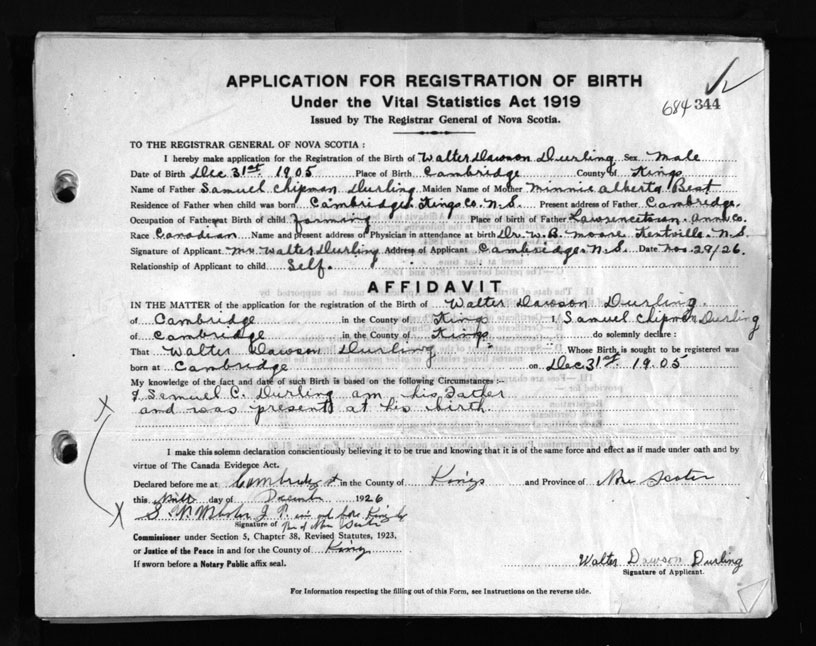 APPLICATION FOR REGISTRATION OF BIRTH
Under the Vital Statistics Act 1919
684 344
Issued by The Registrar General of Nova Scotia.
TO THE REGISTRAR GENERAL OF NOVA SCOTIA :
I hereby make application for the Registration of the Birth of Walter Dawson Durling Sex Male
Date of Birth Dec 31st 1905 Place of Birth Cambridge County of Kings
Name of Father Samuel Chipman Durling Maiden Name of Mother Minnie Alberta Best
Residence of Father when child was born Cambridge Kings Co. N.S. Present address of Father Cambridge.
Occupation of Father at Birth of child farming Place of birth of Father Lawrencetown. Anna Co.
Race Canadian Name and present address of Physician in attendance at birth Dr. W. B. Moore Kentville. N.S
Signature of Applicant Mr. Walter Durling Address of Applicant Cambridge. N.S. Date Nov. 29/26.
Relationship of Applicant to child Self.
AFFIDAVIT
IN THE MATTER of the application for the registration of the Birth of Walter Dawson Durling.
of Cambridge in the County of Kings I, Samuel Chipman Durling
of Cambridge in the County of Kings do solemnly declare :
That Walter Dawson Durling Whose Birth is sought to be registered was
born at Cambridge on Dec 31st 1905
My knowledge of the fact and date of such Birth is based on the following Circumstances :-
I Samuel C. Durling am his Father
and was present at his birth.
I make this solemn declaration conscientiously believing it to be true and knowing that it is of the same force and effect as if made under oath and by
virtue of The Canada Evidence Act.
Declared before me at Cambridge in the County of Kings and Province of Nova Scotia
this day of December 1926
J. P. in and for Kings Co
Signature of Nova Scotia
Commissioner under Section 5, Chapter 38, Revised Statutes, 1923,
or Justice of the Peace in and for the County of Kings
If sworn before a Notary Public affix seal.
Walter Dawson Durling
Signature of Applicant.
For Information respecting the filling out of this Form, see Instructions on the reverse side.